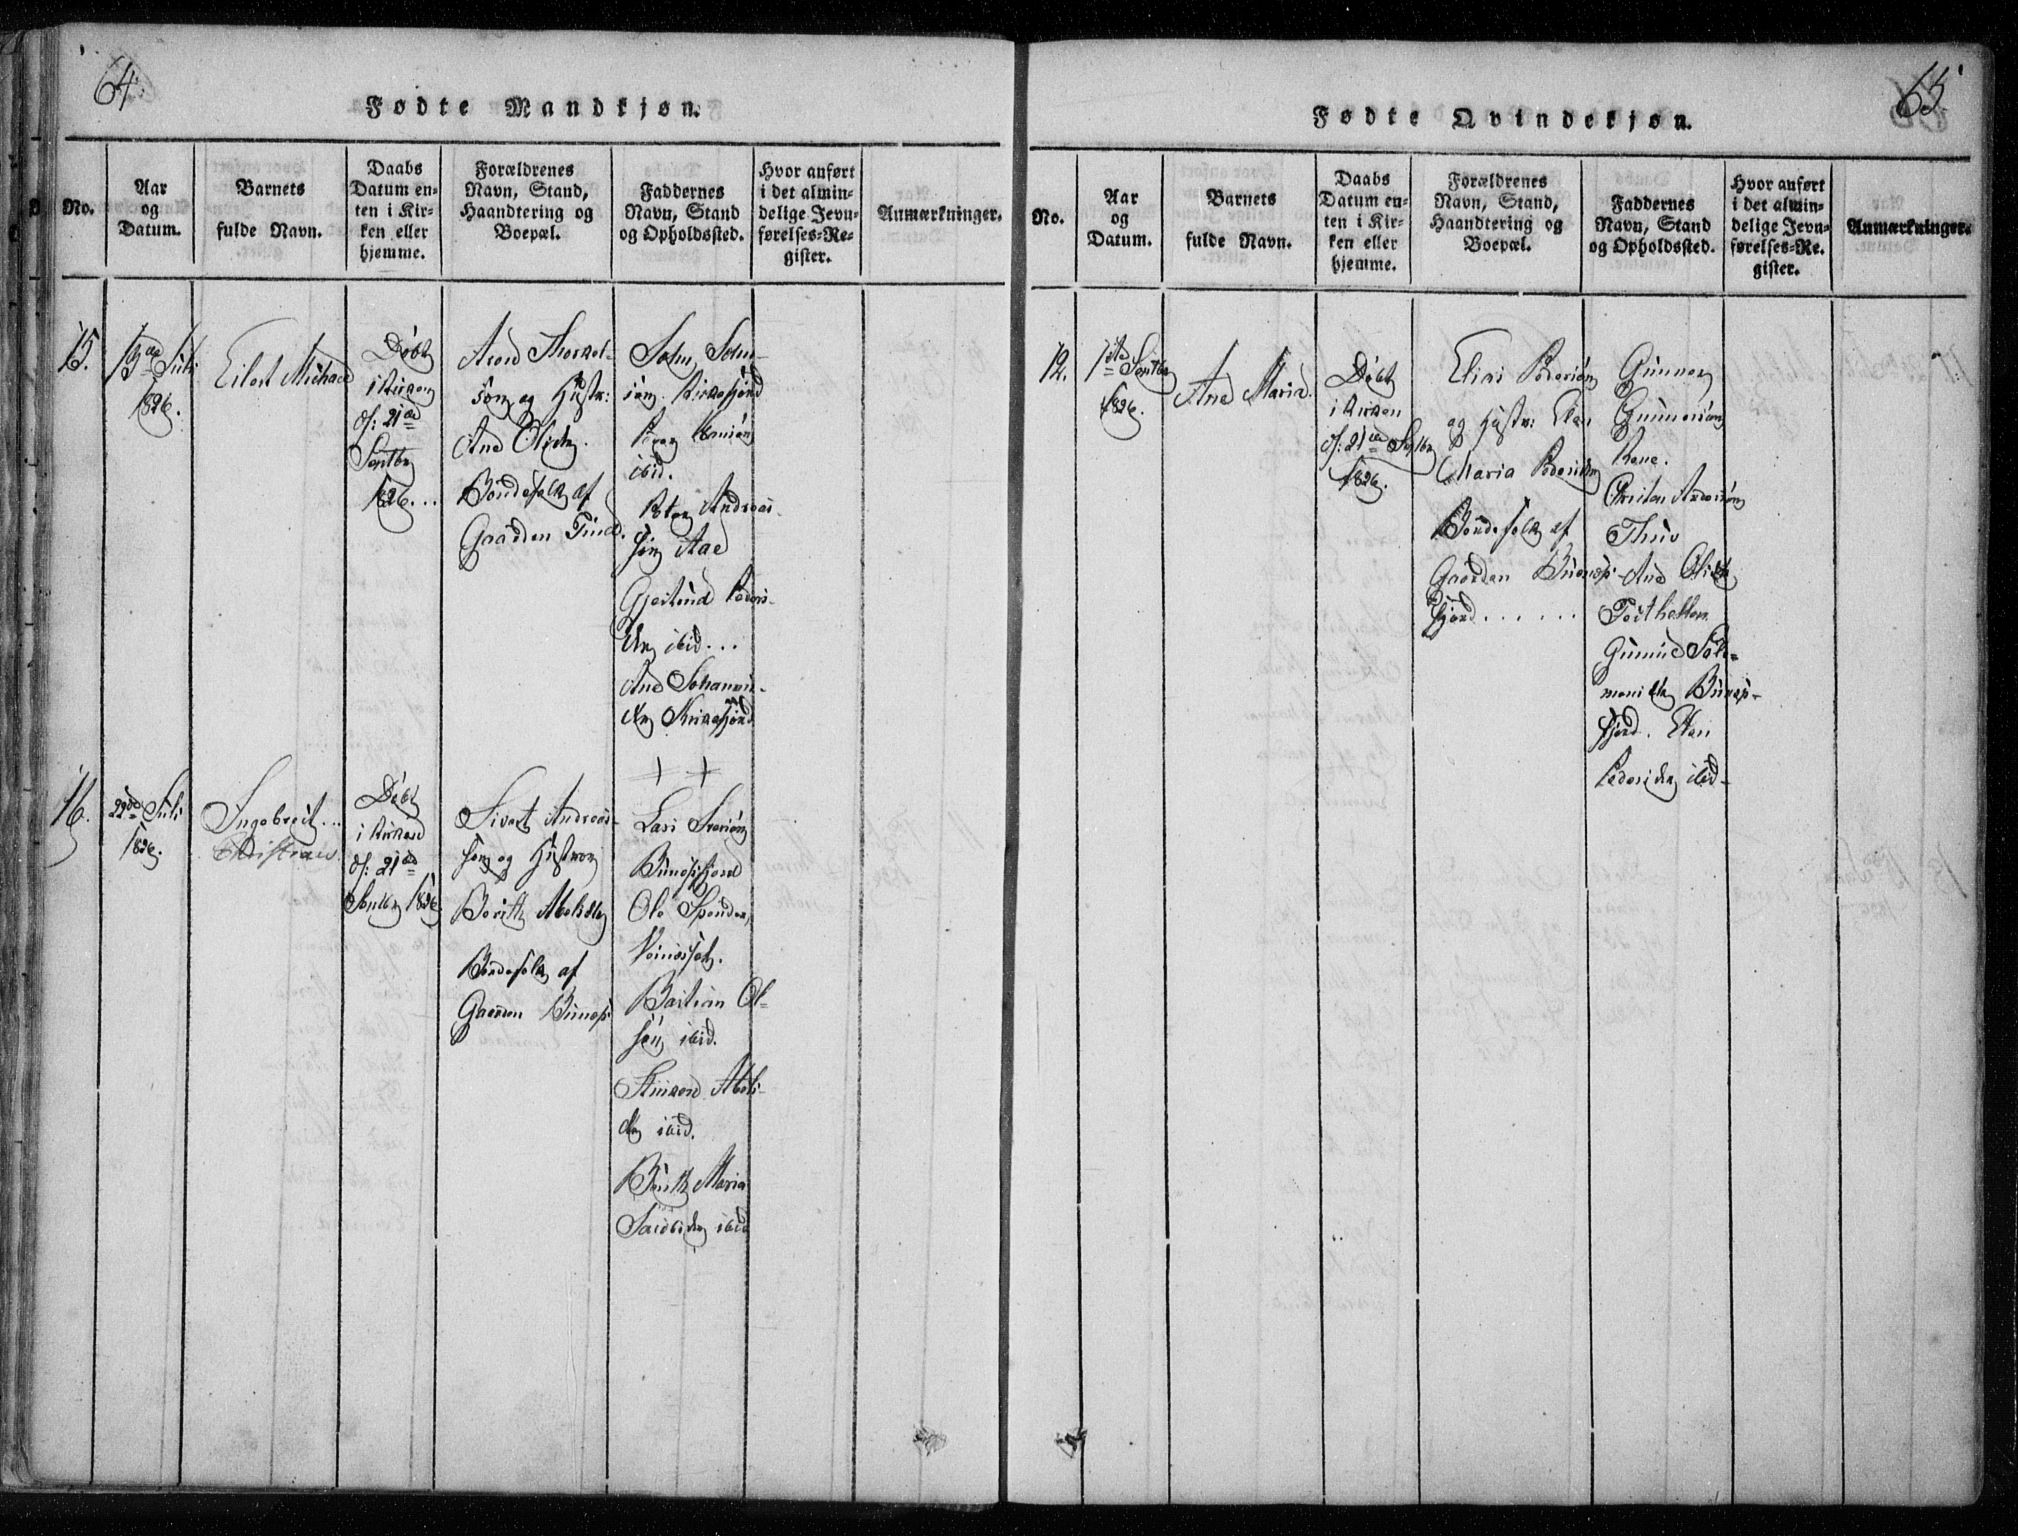 64.
Fødte Mandkjøn.
No.
Aar
og
Datum.
Barnets
fulde Navn.
Daabs
Datum en-
ten i Kir-
ken eller
hjemme.
Forældrenes
Navn, Stand,
Haandtering og
Boepæl.
Faddernes
Navn, Stand
og Opholdssted.
Hvor anført
i det almin-
delige Jevn-
førelses-Re-
gister.
Anmærkninger.
15.
Juli
1826.
Eilert Michael
Døbt
i Kirken
d: 21de
Septbr
1826...
Arond Thorkel-
søn og Hustr:
Ane Olsdtr.
Bondefolk af
Gaarden Tind.
John John-
søn Kirkefjord
ibid.
Peter Andreas-
søn Aae
Gjertrud Peders-
dtr ibid...
Ane Johannis-
dtr Kirkefjord
16.
22de Juli
1826.
Ingebreit..
Christian
Døbt
i Kirken
d: 21de
Septbr 1826
Sivert Andreas-
søn og Hustroe
Berith Abelsdtr
Bondefolk af
Gaarden Bunæs
Lars Iversøn
Bunæsfjord
Ole
Bastian Ol-
søn ibid.
Abels-
dtr ibid.
Berith Maria
ibid
65
Fødte Qvindekjøn.
No.
Aar
og
Datum.
Barnets
fulde Navn.
Daabs
Datum en-
ten i Kir-
ken eller
hjemme.
Forældrenes
Navn, Stand,
Haandtering og
Boepæl.
Faddernes
Navn, Stand
og Opholdssted.
Hvor anført
i det almin-
delige Jevn-
førelses-Re-
gister.
Anmærkninger.
12.
1ste Septbr
1826.
Ane Maria.
Døbt
i Kirken
d: 21de Septbr
1826.
Elias Pedersøn
og Hustr: Elen
Maria Pedersdtr
Bondefolk af
Gaarden Bunæs-
fjord......
Gunner
Gunnersøn
Rene.
Ane Olsdtr
Gunild Salo-
monsdtr Bunæs-
fjord. Elen
Pedersdtr ibid-